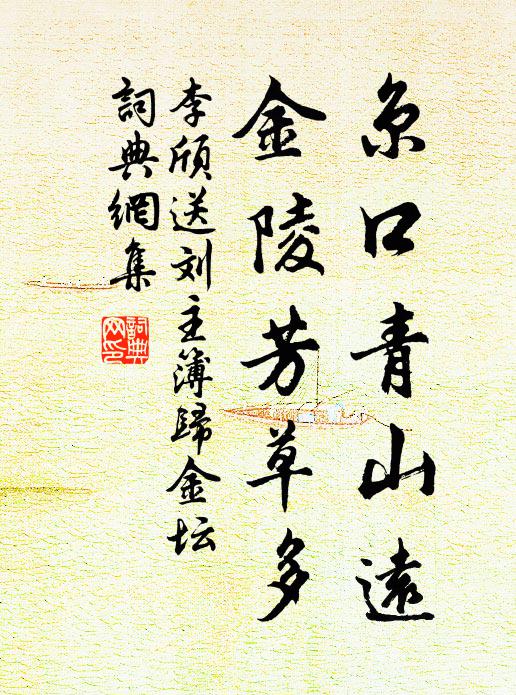 京口青山遠
金陵芳草多
李頎送刘主簿歸金坛
詞典網集
詞典
网印